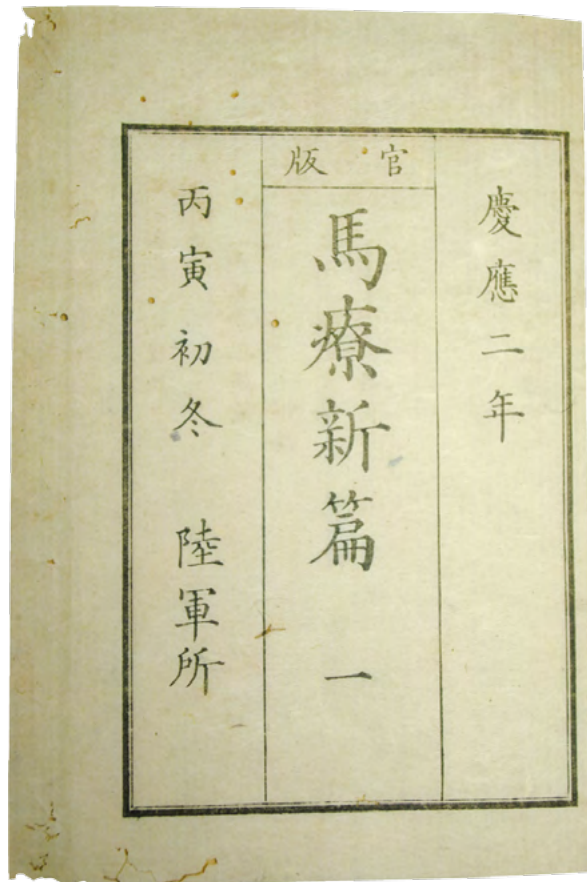 慶應二年
官版
馬療新篇 一
丙寅初冬 陸軍所